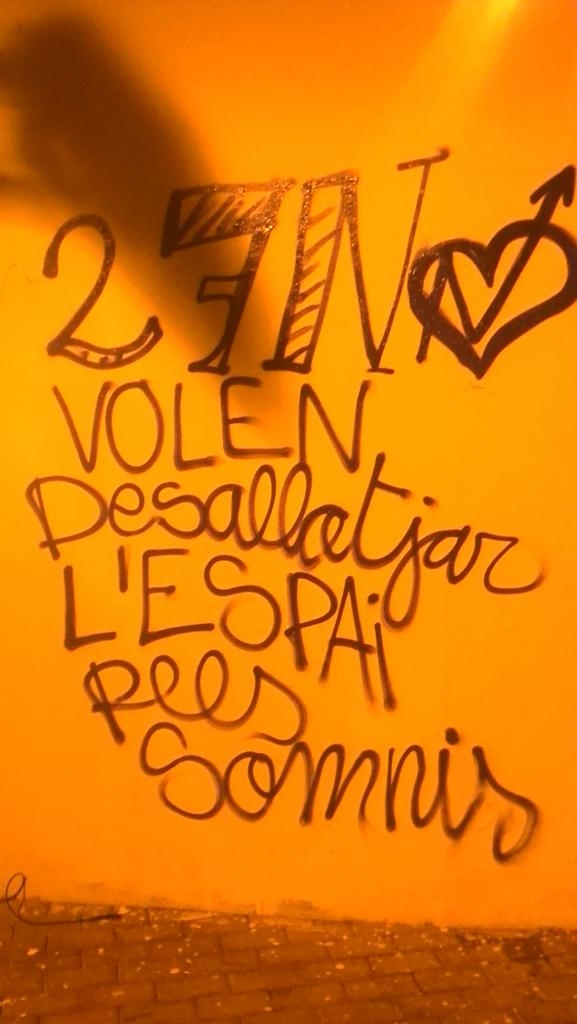 27N
VOLEN
Desallatjar
L'ESPAi
pels
Somnis